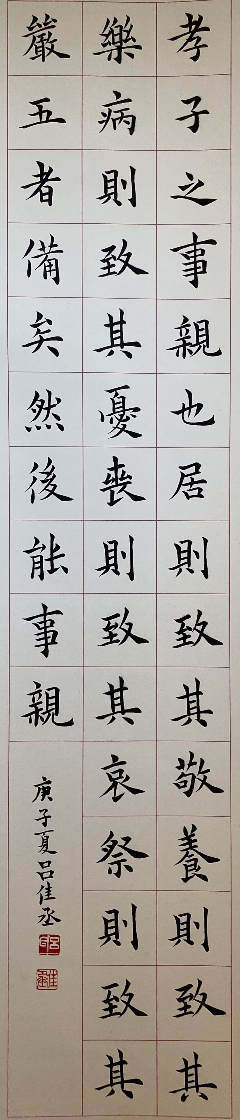 孝子之事親也居則致其敬養則致其
樂病則致其憂喪則致其哀祭則致其
嚴五者備矣然後能事親
庚子夏呂佳丞